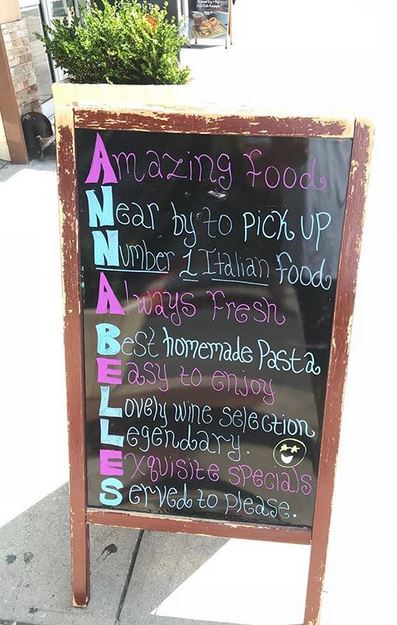 Amazing food
Near by to pick up
Number 1 Italian food
Always Fresh
Best homemade Pasta
Easy to enjoy
Lovely wine selection
Legendary.
Exquisite specials
Served to please.